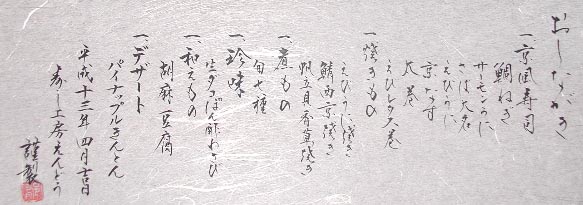 おしながき
一、京風寿司
鯛ねぎ
サーモンうに
さば大名
えびうに
京なす
大巻
えびレタス巻
一、焼きもの
えびうに焼き
鯖西京焼き
帆立貝香草焼き
一、煮もの
旬七種
一、珍味
生ダコぽん酢わさび
一、和えもの
胡麻豆腐
一、デザート
パイナップルきんとん
平成十三年四月吉日
寿し工房えんどう
謹製